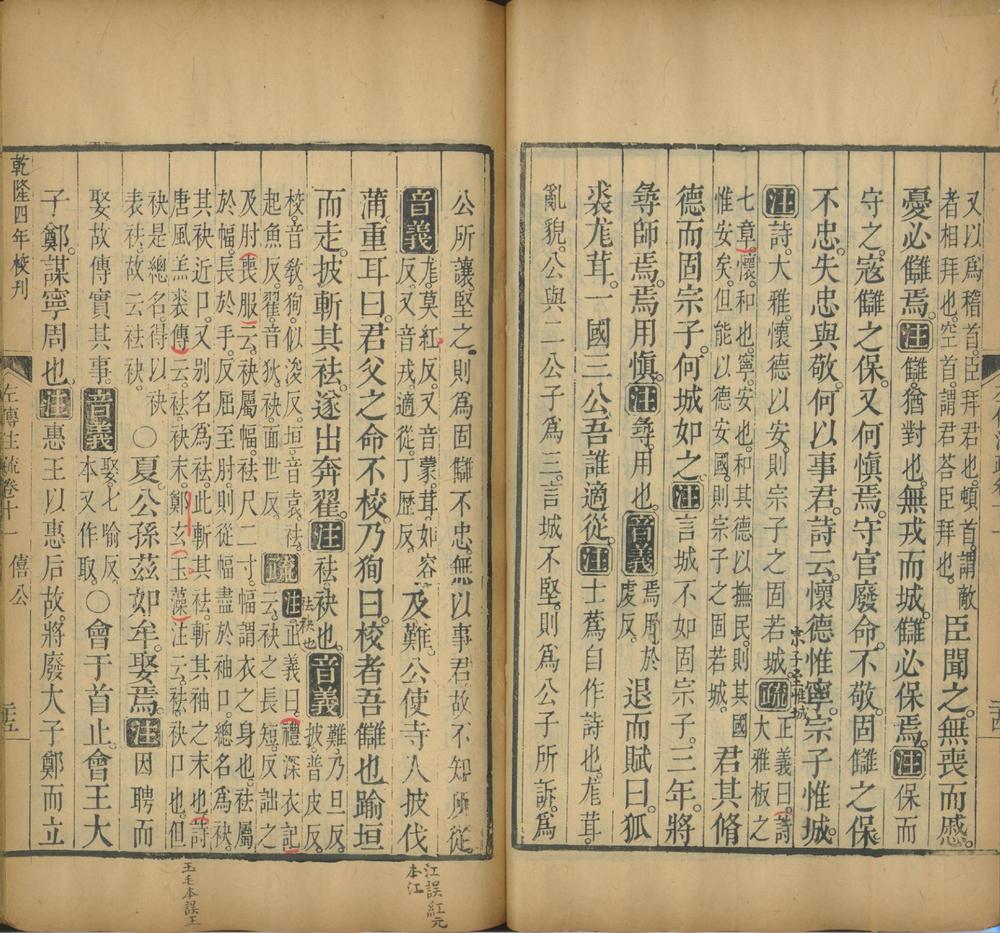 又以爲稽首。臣拜君也。頓首。謂敵
者相拜也。空首。謂君荅臣拜也。
臣聞之。無喪而慼。
憂必讎焉。注讎。猶對也。無戎而城。讎必保焉。注保而
守之。寇讎之保。又何愼焉。守官廢命。不敬。固讎之保
不忠。失忠與敬。何以事君。詩云。懷德惟寧。宗子惟城。
注詩。大雅。懷德以安。則宗子之固若城。疏
宗子至惟城
正義曰。詩
大雅板之
七章懷。和也。寧。安也。和其德以撫民。則其國
惟安矣。但能以德安國。則宗子之固若城。
君其脩
德而固宗子。何城如之。注言城不如固宗子。三年。將
尋師焉。焉用愼。注尋。用也。音義
焉用於
虔反。
退而賦曰。狐
裘尨茸。一國三公。吾誰適從。注士蔿自作詩也。尨茸。
亂貌。公與二公子爲三。言城不堅。則爲公子所訴。爲
公所讓。堅之。則爲固讎不忠。無以事君。故不知所從。
音義
尨。莫紅反。又音蒙。茸如容
反。又音戎。適從。丁歷反。
及難。公使寺人披伐
蒲。重耳曰。君父之命不校。乃狥曰。校者吾讎也。踰垣
而走。披斬其袪。遂出奔翟。注袪。袂也。音義
難。乃旦反。
披普皮反。
校。音敎。狥。似浚反。垣音袁。袪
起魚反。翟音狄。袂面世反。
疏
袪袂也
注。正義曰。禮深衣記
云。袂之長短。反詘之
及肘。喪服云。袂屬幅。袪尺二寸。幅謂衣之身也。袪屬
於幅。長於手。反屈至肘。則從幅盡於袖口。總名爲袂。
其袂近口。又别名爲袪。此斬其袪。斬其袖之末也。詩
唐風羔裘傳云。袪袂末。鄭玄玉藻注云。袪。袂口也。但
袂是總名。得以袂
表袪。故云袪袂。
○夏。公孫茲如牟。娶焉。注因聘而
娶。故傳實其事。音義
娶。七喻反。
本又作取。
○會于首止。會王大
子鄭。謀寧周也。注惠王以惠后故。將廢大子鄭而立
乾隆四年校刊
左傳注疏卷十一 僖公
江誤紅元
本江
玉毛本誤王